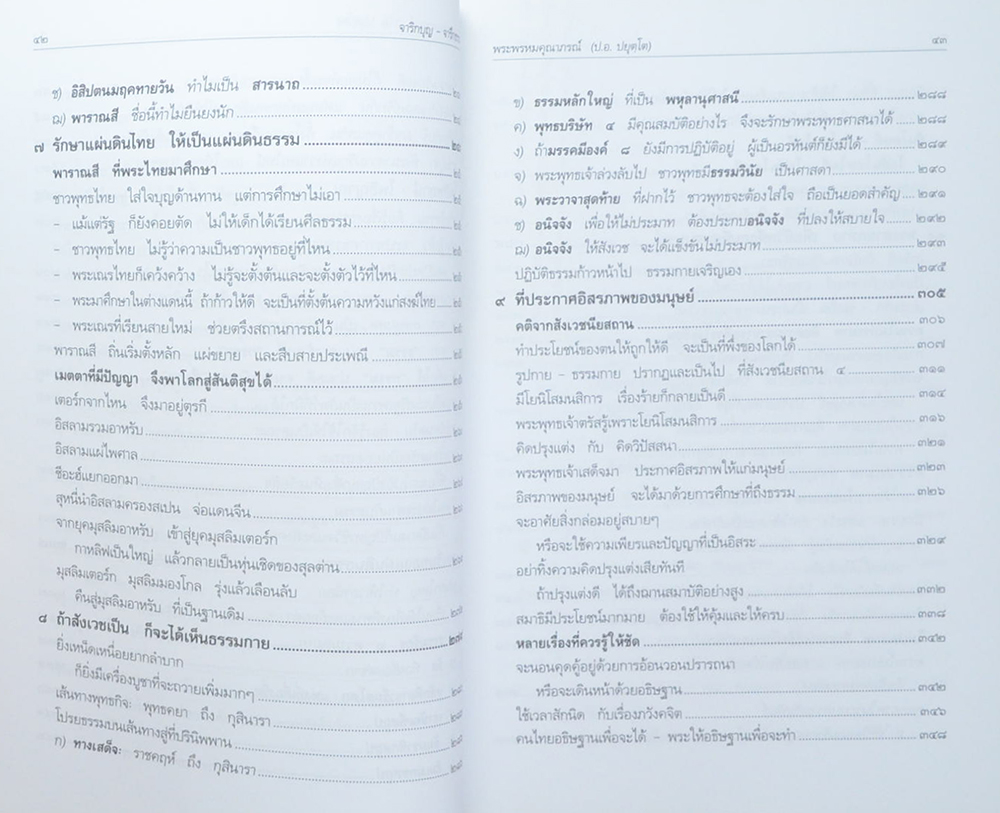 ๔๒
จาริกบุญ - จารึก
ช) อิสิปตนมฤคทายวัน ทำไมเป็น สารนาถ
ฌ) พาราณสี ชื่อนี้ทำไมยืนยงนัก
๗ รักษาแผ่นดินไทย ให้เป็นแผ่นดินธรรม
พาราณสี ที่พระไทยมาศึกษา
ชาวพุทธไทย ใส่ใจบุญด้านทาน แต่การศึกษาไม่เอา
- แม้แต่รัฐ ก็ยังคอยตัด ไม่ให้เด็กได้เรียนศีลธรรม
- ชาวพุทธไทย ไม่รู้ว่าความเป็นชาวพุทธอยู่ที่ไหน
- พระเณรไทยก็เคว้งคว้าง ไม่รู้จะตั้งต้นและจะตั้งตัวไว้ที่ไหน
- พระมาศึกษาในต่างแดนนี้ ถ้าก้าวให้ดี จะเป็นที่ตั้งต้นความหวังแก่สงฆ์ไทย
- พระเณรที่เรียนสายใหม่ ช่วยตรึงสถานการณ์ไว้
พาราณสี ถิ่นเริ่มตั้งหลัก แผ่ขยาย และสืบสายประเพณี
เมตตาที่มีปัญญา จึงพาโลกสู่สันติสุขได้
เตอร์กจากไหน จึงมาอยู่ตุรกี
อิสลามรวมอาหรับ
อิสลามแผ่ไพศาล
ชีอะฮ์แยกออกมา
สุหนี่นำอิสลามครองสเปน จ่อแดนจีน
จากยุคมุสลิมอาหรับ เข้าสู่ยุคมุสลิมเตอร์ก
กาหลิฟเป็นใหญ่ แล้วกลายเป็นหุ่นเชิดของสุลต่าน
มุสลิมเตอร์ก มุสลิมมองโกล รุ่งแล้วเลือนลับ
คืนสู่มุสลิมอาหรับ ที่เป็นฐานเดิม
๘ ถ้าสังเวชเป็น ก็จะได้เห็นธรรมกาย
ยิ่งเหน็ดเหนื่อยยากลำบาก
ก็ยิ่งมีเครื่องบูชาที่จะถวายเพิ่มมากๆ
เส้นทางพุทธกิจ: พุทธคยา ถึง กุสินารา
โปรยธรรมบนเส้นทางสู่ที่ปรินิพพาน
ก) ทางเสด็จ: ราชคฤห์ ถึง กุสินารา
พระพรหมคุณาภรณ์ (ป.อ. ปยุตฺโต)
๔๓
ข) ธรรมหลักใหญ่ ที่เป็น พหุลานุศาสนี ๒๘๘
ค) พุทธบริษัท ๔ มีคุณสมบัติอย่างไร จึงจะรักษาพระพุทธศาสนาได้ ๒๘๘
ง) ถ้ามรรคมีองค์ ๘ ยังมีการปฏิบัติอยู่ ผู้เป็นอรหันต์ก็ยังมีได้ ๒๘๙
จ) พระพุทธเจ้าล่วงลับไป ชาวพุทธมีธรรมวินัย เป็นศาสดา ๒๙๐
ฉ) พระวาจาสุดท้าย ที่ฝากไว้ ชาวพุทธจะต้องใส่ใจ ถือเป็นยอดสำคัญ ๒๙๑
ช) อนิจจัง เพื่อให้ไม่ประมาท ต้องประกบอนิจจัง ที่ปลงให้สบายใจ ๒๙๒
ฌ) อนิจจัง ให้สังเวช จะได้แข็งขันไม่ประมาท ๒๙๓
ปฏิบัติธรรมก้าวหน้าไป ธรรมกายเจริญเอง ๒๙๕
๙ ที่ประกาศอิสรภาพของมนุษย์ ๓๐๕
คติจากสังเวชนียสถาน ๓๐๖
ทำประโยชน์ของตนให้ถูกให้ดี จะเป็นที่พึ่งของโลกได้ ๓๐๗
รูปกาย - ธรรมกาย ปรากฏและเป็นไป ที่สังเวชนียสถาน ๔ ๓๑๑
มีโยนิโสมนสิการ เรื่องร้ายก็กลายเป็นดี ๓๑๔
พระพุทธเจ้าตรัสรู้เพราะโยนิโสมนสิการ ๓๑๖
คิดปรุงแต่ง กับ คิดวิปัสสนา ๓๒๑
พระพุทธเจ้าเสด็จมา ประกาศอิสรภาพให้แก่มนุษย์ ๓๒๓
อิสรภาพของมนุษย์ จะได้มาด้วยการศึกษาที่ถึงธรรม ๓๒๖
จะอาศัยสิ่งกล่อมอยู่สบายๆ
หรือจะใช้ความเพียรและปัญญาที่เป็นอิสระ ๓๒๙
อย่าทิ้งความคิดปรุงแต่งเสียทันที
ถ้าปรุงแต่งดี ได้ถึงฌานสมาบัติอย่างสูง ๓๓๒
สมาธิมีประโยชน์มากมาย ต้องใช้ให้คุ้มและให้ครบ ๓๓๘
หลายเรื่องที่ควรรู้ให้ชัด ๓๔๒
จะนอนคุดคู้อยู่ด้วยการอ้อนวอนปรารถนา
หรือจะเดินหน้าด้วยอธิษฐาน ๓๔๒
ใช้เวลาสักนิด กับเรื่องภวังคจิต ๓๔๖
คนไทยอธิษฐานเพื่อจะได้ - พระให้อธิษฐานเพื่อจะทำ ๓๔๘